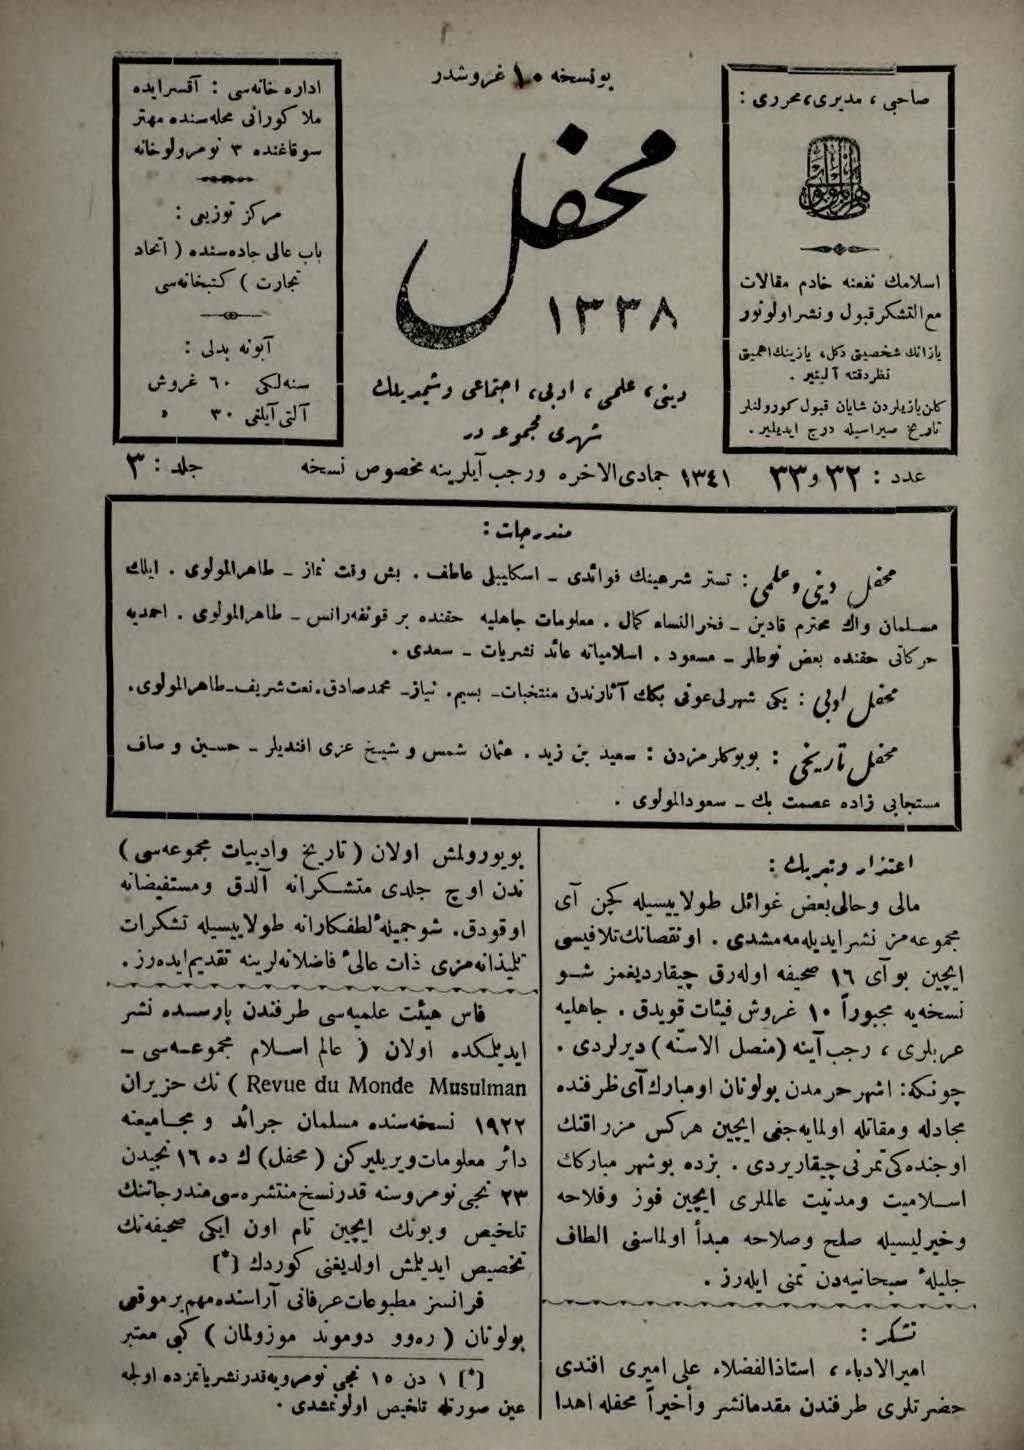 بو نسخه ١٠ غروشدر
صاحبی ، مدیری ، محرری :
اسلامك نفعنه خادم مقالات
مع التشكر قبول و نشر اولونور
یازانك شخصیتی دكل ، یازینك اهمیتی
نظر دقته آلینیر .
كلن یازیلردن شایان قبول كورولنلر
تاریخ صیراسیله درج ایدیلیر .
محفل
١٣٣٨
دینی ، علمی ، ادبی ، اجتماعی و شیمدیلك
شهری مجموعه در
اداره خانه سی : آقسرایده
ملا كورانی محله سنده مهتر
سوقاغنده ٣ نومرولو خانه
مركز توزیعی :
باب عالی جاده سنده ( اتحاد
تجارت ) كتبخانه سی
آبونه بدلی :
سنه لكی ٦٠ غروش
آلتی آیلغی ٣٠ »
عدد : ٣٢ و ٣٣ ١٣٤١ جمادی الاخره و رجب آیلرینه مخصوص نسخه جلد : ٣
مندرجات :
محفل دینی و علمی : تستر شرعینك فوائدی – اسكلیبلی عاطف . بش وقت نماز – طاهر المولوی . ایلك
مسلمان واك محترم قادین – فخر النساء كمال . معلومات جاهلیه حقنده بر قونفه رانس – طاهر المولوی . احمدیه
حركاتی حقنده بعض نوطلر – مسعود . اسلامیاته عائد نشریات – سعدی .
محفل ادبی : یكی شهرلی عونی بكك آثارندن منتخبات – بسیم . نیاز – محمد صادق . نعت شریف – طاهر المولوی .
محفل تاریخی : بویوكلرمزدن : سعید بن زید . عثمان شمس و شیخ عزی افندیلر – حسین وصاف
مستجابی زاده عصمت بك – سعود المولوی .
اعتذار و تبریك :
مالی و حالی بعض غوائل طولاییسیله كچن آی
مجموعه مز نشر ایدیله مه مشدی . او نقصانك تلافیسی
ایچین بو آی ١٦ صحیفه اوله رق چیقاردیغمز شو
نسخه یه مجبوراً ١٠ غروش فیئات قویدق . جاهلیه
عربلری ، رجب آینه ( منصل الاسنه ) دیرلردی .
چونكه : اشهر حرمدن بولونان او مبارك آی ظرفنده
مجادله و مقاتله اولمایه جغی ایچین هركس مزراقنك
اوجنده كی تمرنی چیقاریردی . بزده بو شهر مباركك
اسلامیت و مدنیت عالملری ایچین فوز و فلاحه
و خیرلیسیله صلح و صلاحه مبدأ اولماسنی الطاف
جلیلهٔ سبحانیه دن تمنی ایله رز .
تشكر :
امیر الادباء ، استاذ الفضلاء علی امیری افندی
حضرتلری طرفندن مقدما نشر و أخیراً محفله اهدا
بویورولمش اولان ( تاریخ و ادبیات مجموعه سی )
ندن اوچ جلدی متشكرانه آلدق و مستفیضانه
اوقودق . شو جمیلهٔ لطفكارانه طولاییسیله تشكرات
تلمیذانه مزی ذات عالیٔ فاضلانه لرینه تقدیم ایده رز .
فاس هیئت علمیه سی طرفندن پارسده نشر
ایدیلمكده اولان ( عالم اسلام مجموعه سی –
Revue du Monde Musulman ) نك حزیران
١٩٢٢ نسخه سنده مسلمان جرائد و مجامیعنه
دائر معلومات ویریلیركن ( محفل ) ك ده ١٦ نجیدن
٢٣ نجی نومروسنه قدر نسخ منتشره سی مندرجاتنك
تلخیص و بونك ایچین تام اون ایكی صحیفه نك
تخصیص ایدیلمش اولدیغنی كوردك [*]
فرانسز مطبوعات عرفانی آراسنده مهم بر موقعی
بولونان ( ره وو دو موند موزولمان ) كبی معتبر
[*] ١ دن ١٥ نجی نومرویه قدر نشریاتمزده اولجه
عین صورتله تلخیص اولونمشدی .